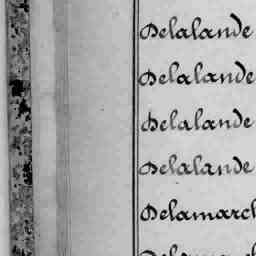 Delalande
Delalande
Delalande
Delalande
Delamarch